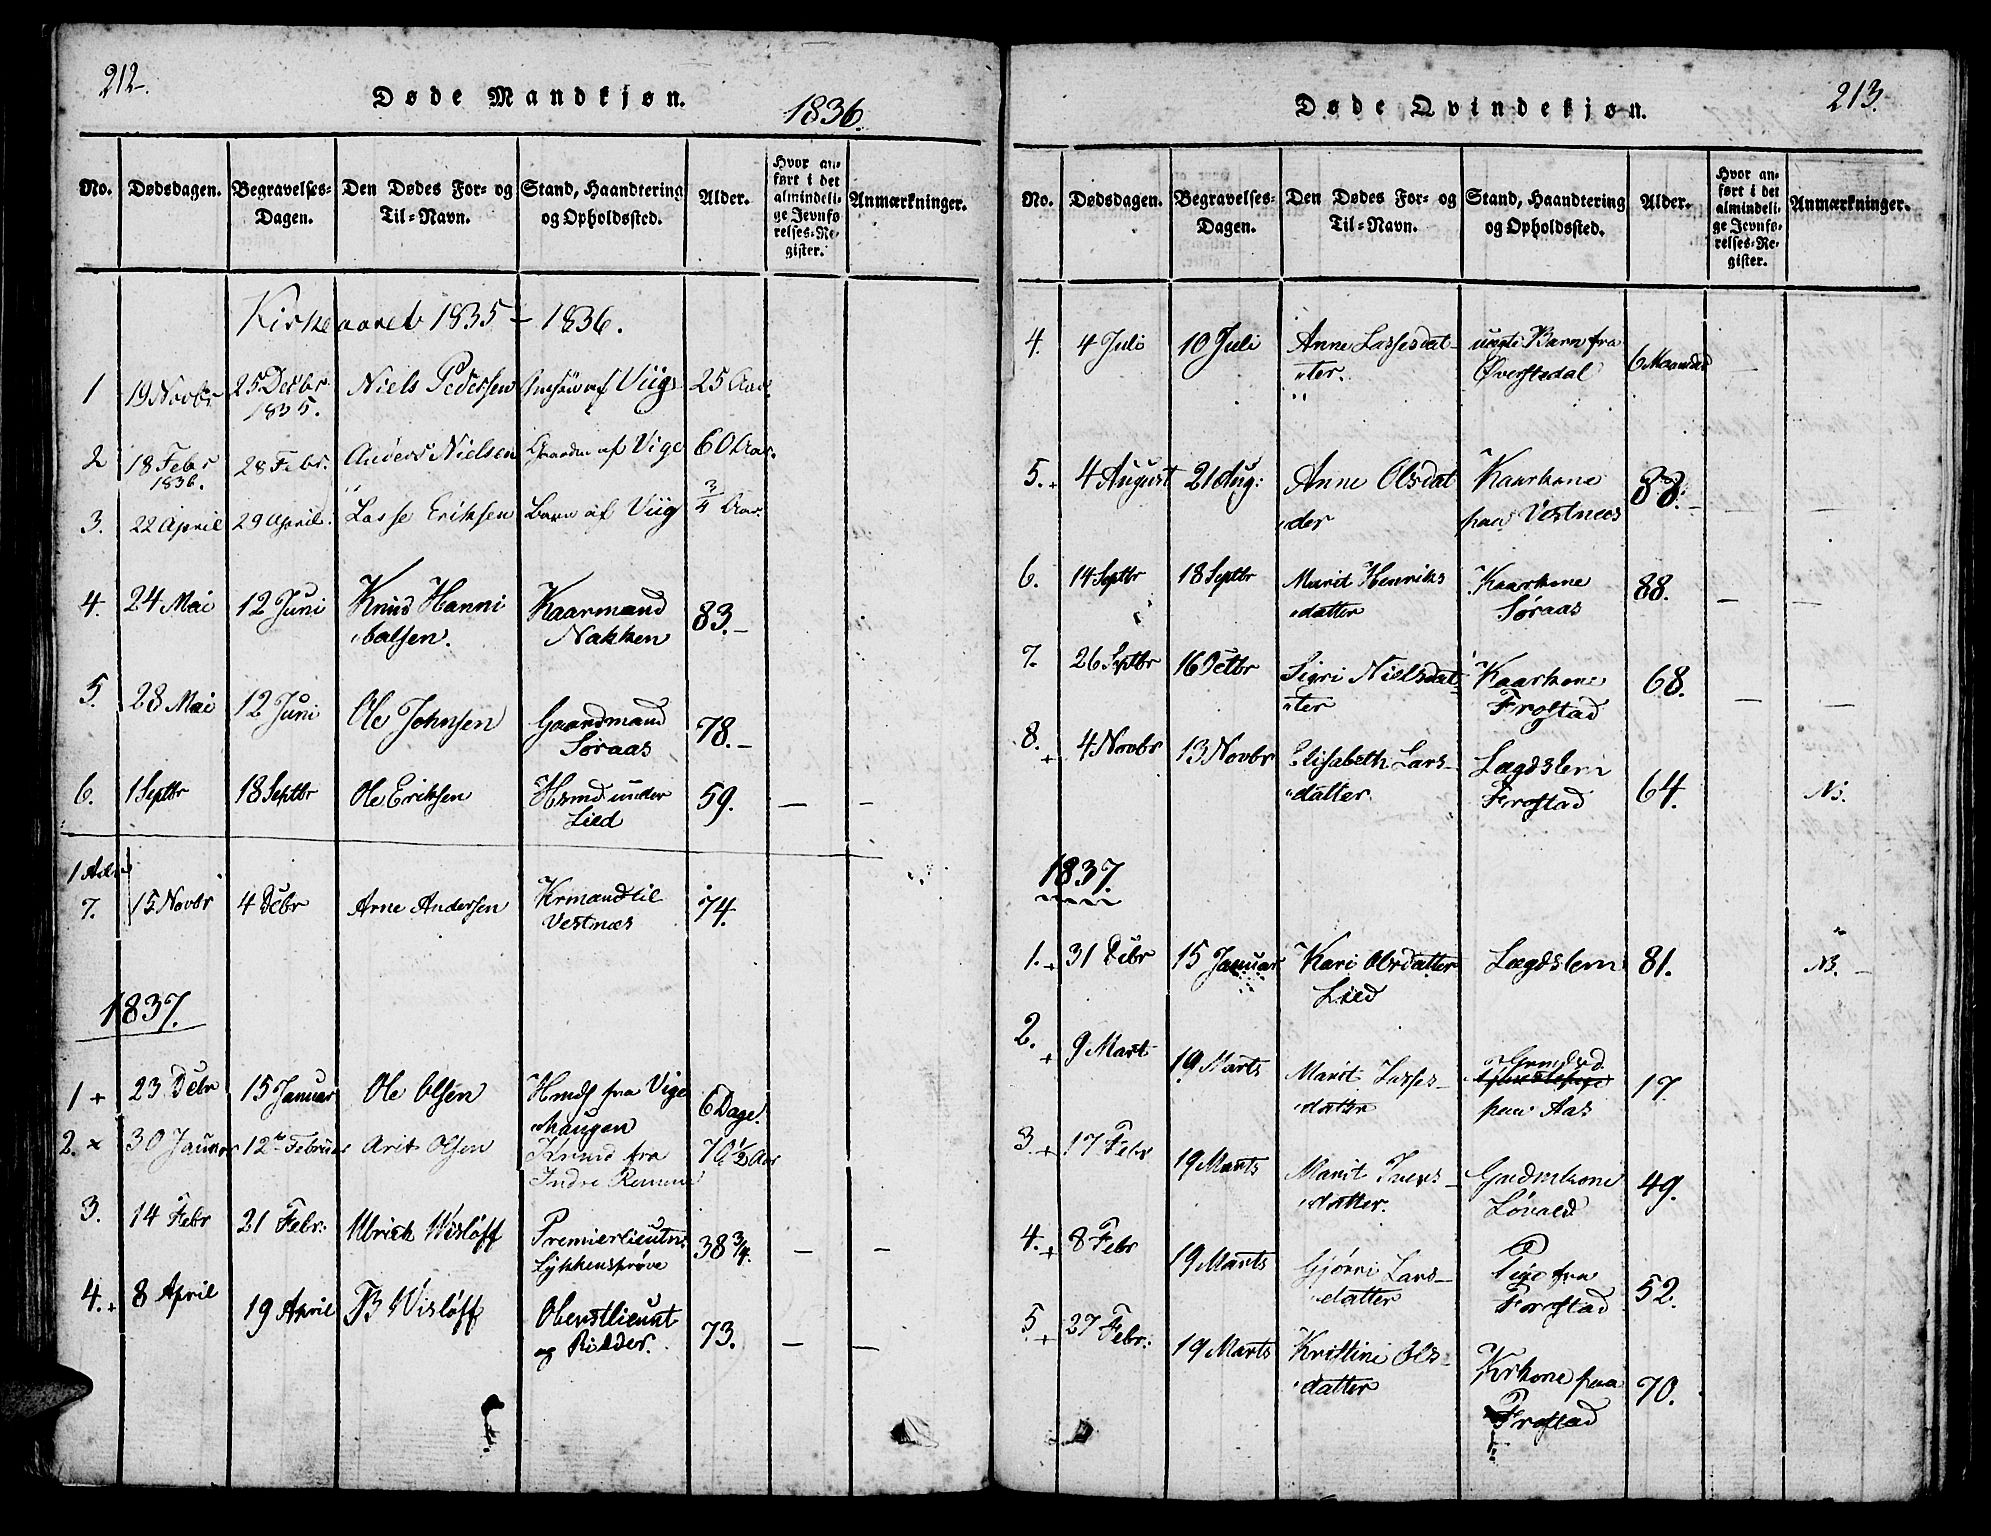 212.
Døde Mandkjøn.
1836.
No. Dødsdagen. Begravelses-Dagen. Den Dødes For- og Til-Navn. Stand, Haandtering og Opholdssted. Alder. Hvor anført i det almindelige Jevnførelses-Register. Anmærkninger.
Kirkeaaret 1835 - 1836.
1 19 Novbr 25 Decbr 1835. Niels Pedersen af Viig 25 Aar.
2 18 Febr 1836. 28 Febr. Anders Nielsen Gaardm af Vige 60 Aar.
3. 22 April 29 April. Lasse Eriksen Barn af Viig 3/4 Aar.
4. 24 Mai 12 Juni Knud Hanni
balsen. Kaarmand
Nakken 83. –
5. 28 Mai 12 Juni Ole Johnsen Gaardmand
Søraas 78. –
6. 1 Septbr 18 Septbr Ole Eriksen Hsmd under
Lied 59. – –
7. 15 Novbr 4 Debr Arne Andersen Krmand til
Vestnæs 74.
1837.
1 + 23 Debr 15 Januar Ole Olsen fra Vige
Haugen 6 Dage.
2. × 30 Januar 12te Februar Arit Olsen Krmd fra
Indre Remme 70 1/2 Aar
3. 14 Febr 21 Febr: Ulrich Wisløff Premierlieutn:
Lykkensprøve 38 3/4. – –
4. + 8 April 19 April B Wisløff Oberstlieunt
og Ridder. 73. – –
213.
Døde Qvindekjøn.
No. Dødsdagen. Begravelses-Dagen. Den Dødes For- og Til-Navn. Stand, Haandtering og Opholdssted. Alder. Hvor anført i det almindelige Jevnførelses-Register. Anmærkninger.
4. 4 Juli 10 Juli Anne Lassesdat-
ter. uægte Barn fra
Øverstedal 6 Maaneder
5. + 4 August 21 Aug: Anne Olsdat
der Kaarkone
paa Vestnees 88. –
6. 14 Septbr 18 Septbr Marit Henriks
datter Kaarkone
Søraas 88. – –
7. 26 Septbr 16 Octbr Sigri Nielsdat-
ter Kaarkone
Frostad 68. – –
8. + 4 Novbr 13 Novbr Elisabeth Lars-
datter. Lægdslem
Frostad 64. NB.
1837.
1. + 31 Debr 15 Januar Kari Olsdatter
Lied Lægdslem 81. NB. –
2. + 9 Mart 19 Marts Marit Lasses-
datter paa Aas 17
3. + 17 Febr 19 Marts Marit Ivers-
datter. Gaedmkone
49.
4. + 8 Febr 19 Marts Gjørri Lars-
datter Pige fra
Forestad 52.
5. + 27 Febr: 19 Marts Kristine Ols-
datter Krkone paa
Frostad 70.